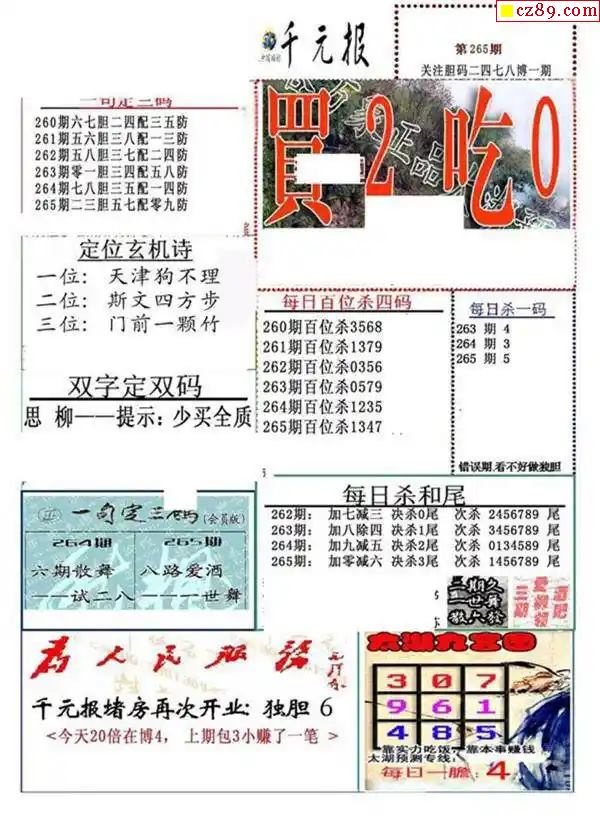 cz89.com
千元报
第265期
关注胆码二四七八博一期
一句定三码
260期六七胆二四配三五防
261期五六胆三八配一三防
262期五八胆三七配二四防
263期零一胆三四配五八防
264期七八胆三五配一四防
265期二三胆五七配零九防
買2吃0
定位玄机诗
一位: 天津狗不理
二位: 斯文四方步
三位: 门前一颗竹
每日百位杀四码
260期百位杀3568
261期百位杀1379
262期百位杀0356
263期百位杀0579
264期百位杀1235
265期百位杀1347
每日杀一码
263 期 4
264 期 3
265 期 5
错误期,看不好做独胆
双字定双码
思 柳——提示: 少买全质
265
一句定三码(会员版)
264期
六期散舞
——试二八
265期
八路爱酒
———世舞
每日杀和尾
262期: 加七减三 决杀0尾 次杀 2456789 尾
263期: 加八除四 决杀1尾 次杀 3456789 尾
264期: 加九减五 决杀2尾 次杀 0134589 尾
265期: 加零减六 决杀3尾 次杀 1456789 尾
为人民服务
千元报堵房再次开业: 独胆 6
<今天20倍在博4, 上期包3小赚了一笔 >
太湖九宫图
3 0 7
9 6 1
4 8 5
靠实力吃饭,靠本事赚钱
太湖预测专线:
每日一胆: 4